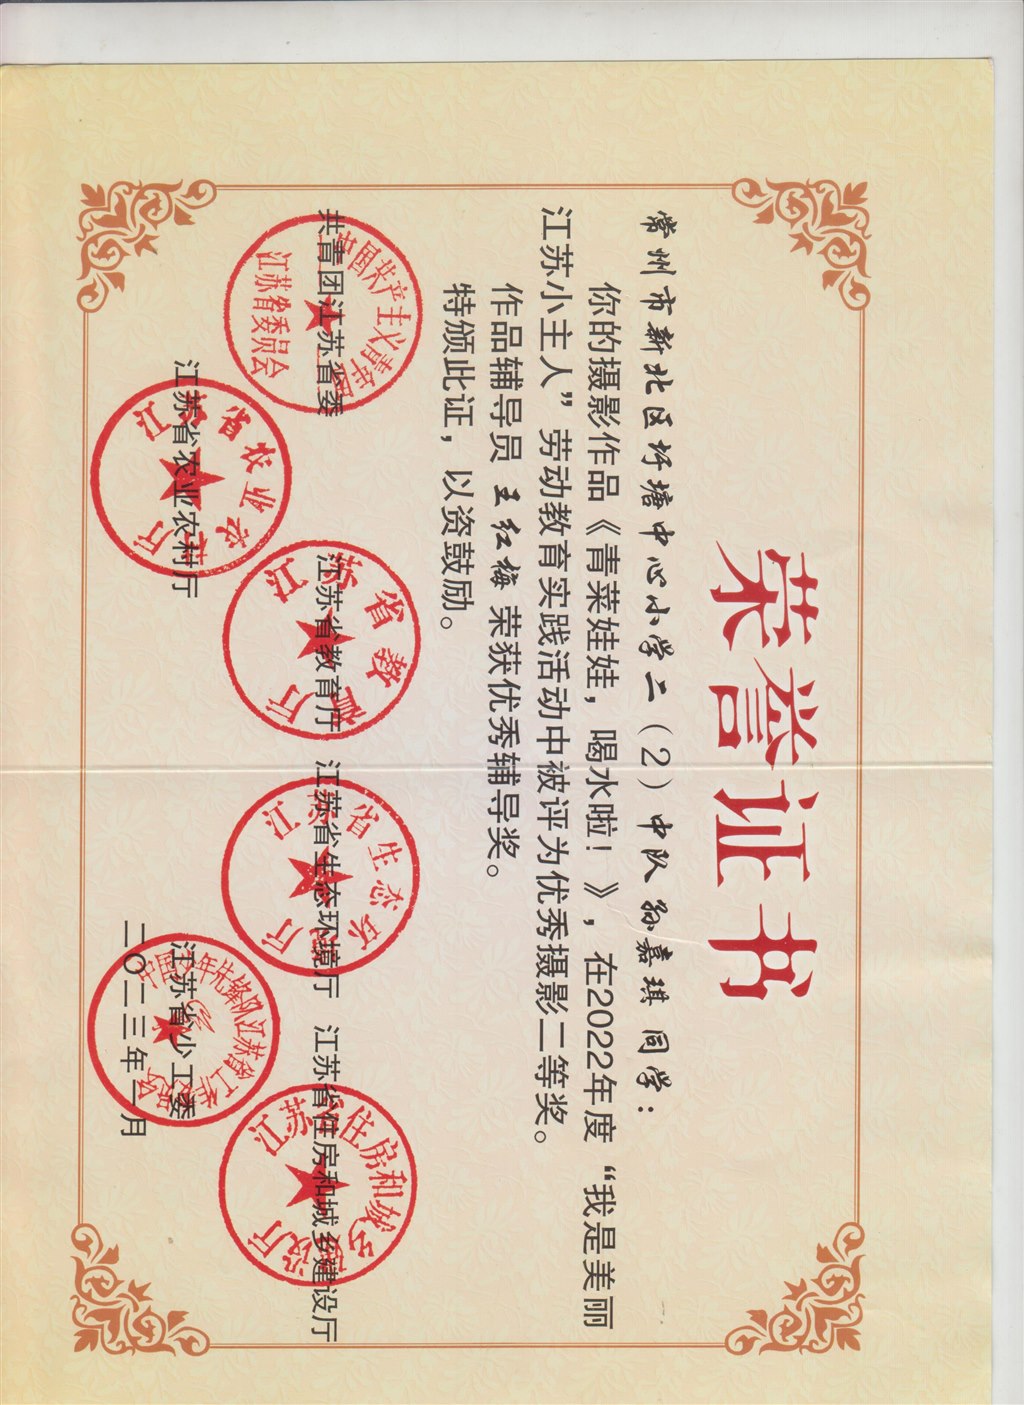 荣誉证书
常州市新北区圩塘中心小学二（2）中队 孙嘉琪 同学：
你的摄影作品《青菜娃娃，喝水啦！》，在2022年度“我是美丽
江苏小主人”劳动教育实践活动中被评为优秀摄影二等奖。
作品辅导员 王红梅 荣获优秀辅导奖。
特颁此证，以资鼓励。
共青团江苏省委 江苏省教育厅 江苏省生态环境厅 江苏省住房和城乡建设厅
江苏省农业农村厅 江苏省少工委
二〇二三年一月
中国共产主义青年团
江苏省委员会
江苏省农业农村厅
江苏省教育厅
江苏省生态环境厅
中国少年先锋队江苏省工作委员会
江苏省住房和城乡建设厅